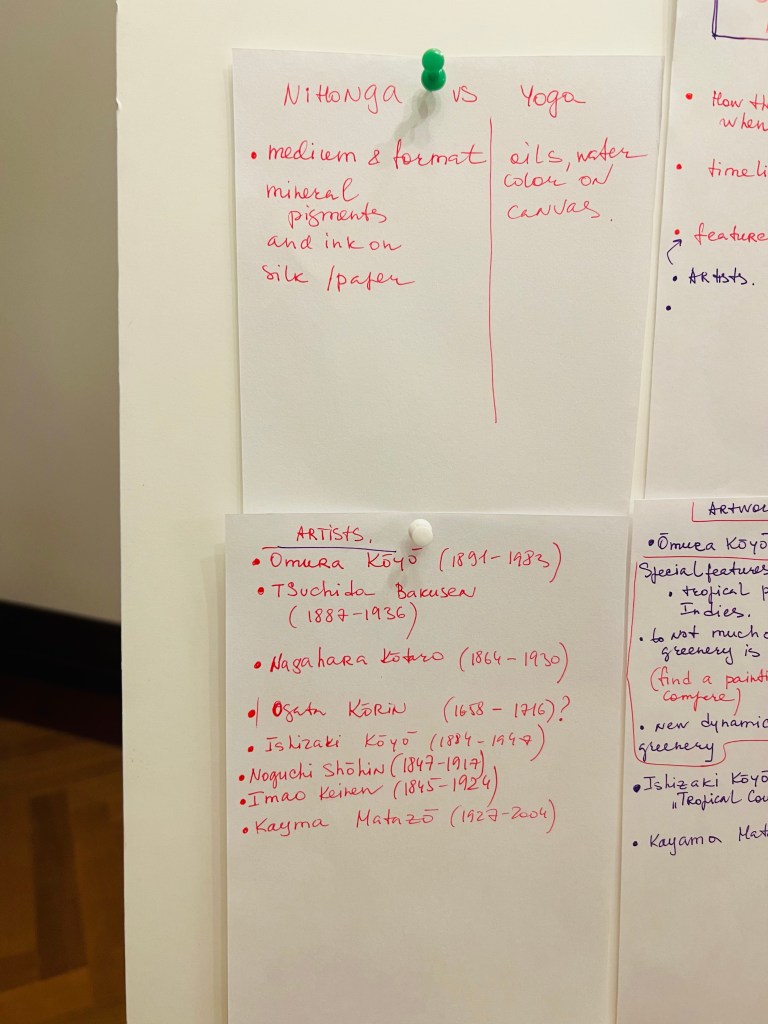 NiHONga vs Yoga
• medium & format
mineral
pigments
and ink on
silk /paper
oils, water
color on
canvas.
• How th
when
• timeli
• feature
• ARtists.
•
ARTISTS.
• Ōmura Kōyō (1891-1983)
• TSuchida Bakusen
(1887-1936)
• Nagahara Kōtaro (1864-1930)
• Ogata KŌRiN (1658-1716)?
• Ishizaki Kōyō (1884-1947)
• Noguchi Shōhin (1847-1917)
• Imao Keinen (1845-1924)
• Kayma Matazō (1927-2004)
ARTWO
• Ōmura Kōyō
Special features
• tropical p
Indies.
• to not much
greenery is
(find a painti
compare)
• new dynamic
greenery
• Ishizaki Kōyō
„Tropical Cou
• Kayama Mat